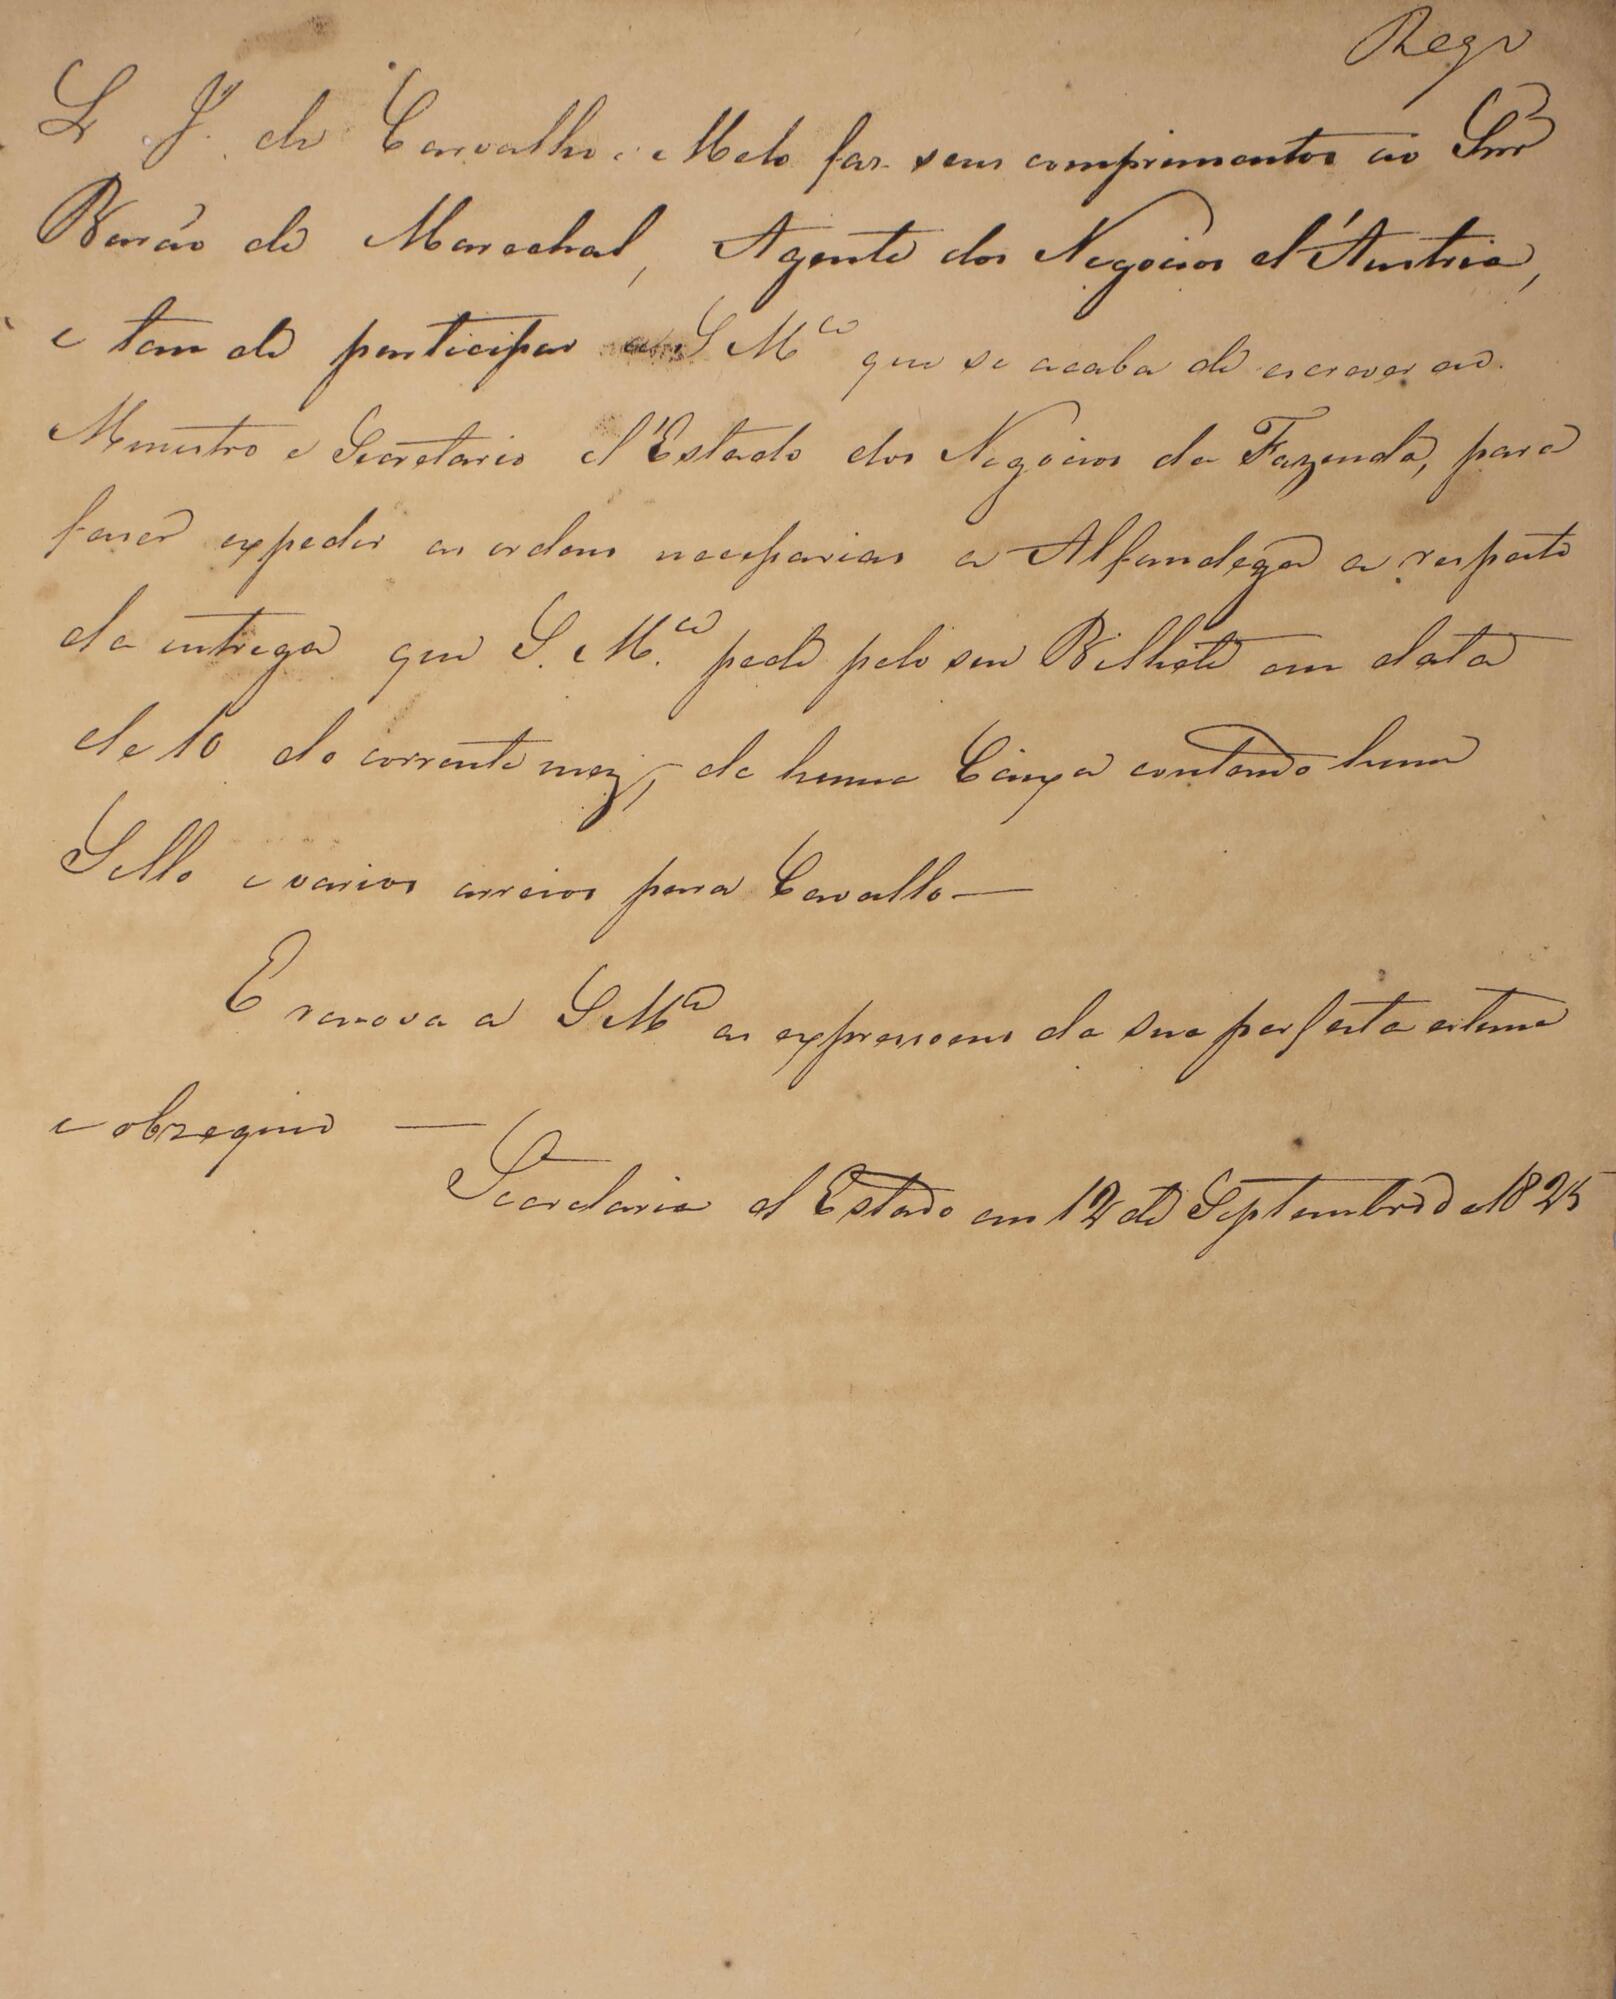 Reg.º
L. J. de Carvalho e Mello faz seus comprimentos ao Snr
Barão de Mareschal, Agente dos Negocios d'Austria,
e tem de participar a S. M.ce que se acaba de escrever ao
Ministro e Secretario d'Estado dos Negocios da Fazenda, para
fazer expedir as ordens necessarias a Alfandega a respeito
da entrega que S. M.ce pede pelo seu Bilhete em data
de 10 do corrente mez, de huma Caixa contendo hum
Sello e varios arreios para Cavallo —
E renova a S. M.ce as expressoens da sua perfeita estima
e obzequio —
Secretaria d'Estado em 12 de Septembro de 1825